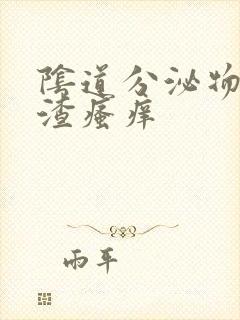 陰道分泌物
渣瘙痒
雨平